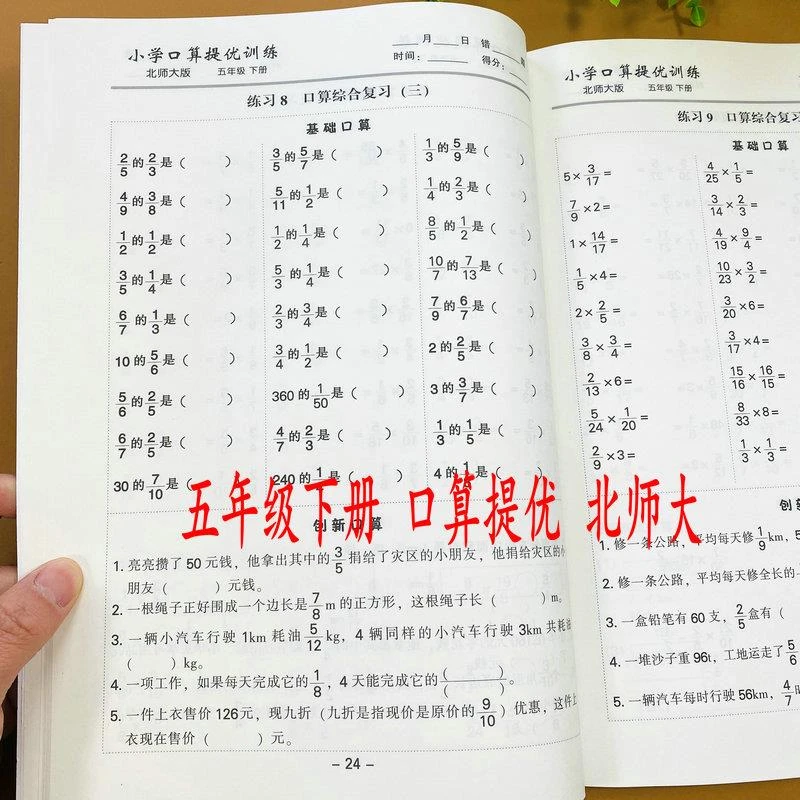 小学口算提优训练
北师大版 五年级 下册
月____日 错____
时间：____ 得分：____
练习 8 口算综合复习（三）
基础口算
2/5的2/3是（ ） 3/5的5/7是（ ） 1/3的5/9是（ ）
4/9的3/8是（ ） 5/11的1/2是（ ） 1/4的2/3是（ ）
1/2的1/2是（ ） 1/2的1/4是（ ） 8/5的1/2是（ ）
3/5的1/4是（ ） 5/3的1/4是（ ） 10/7的7/13是（ ）
6/7的1/3是（ ） 2/3的3/4是（ ） 7/9的6/7是（ ）
10的5/6是（ ） 3/4的1/2是（ ） 2的2/5是（ ）
5/6的2/5是（ ） 360的1/50是（ ） 3的3/7是（ ）
6/7的2/5是（ ） 4/7的2/3是（ ） 1/3的1/5是（ ）
30的7/10是（ ） 240的 是（ ） 4的 是（ ）
五年级下册 口算提优 北师大
创新口算
1. 亮亮攒了 50 元钱，他拿出其中的3/5捐给了灾区的小朋友，他捐给灾区的小
朋友（ ）元钱。
2. 一根绳子正好围成一个边长是7/8m 的正方形，这根绳子长（ ）m。
3. 一辆小汽车行驶 1km 耗油5/12kg，4 辆同样的小汽车行驶 3km 共耗油
（ ）kg。
4. 一项工作，如果每天完成它的1/8，4 天能完成它的（ ）/（ ）。
5. 一件上衣售价 126元，现九折（九折是指现价是原价的9/10）优惠，这件上
衣现在售价（ ）元。
– 24 –
小学口算提优训练
北师大版 五年级 下册
练习 9 口算综合复习
基础口算
5×3/17= 4/25×1/5=
7/9×2= 3/14×2/3=
1×14/17 4/19×9/4=
1/5×4= 10/23×3/2=
2×2/5= 3/20×6=
3/8×3/4= 3/17×4=
2/13×6= 15/16×16/15=
5/24×1/20= 8/33×8=
2/9×3= 1/3×1/3=
创新
1. 修一条公路，平均每天修1/9km，5
2. 修一条公路，平均每天修全长的
3. 一盒铅笔有 60 支，2/5盒有（
4. 一堆沙子重 96t，工地运走了5/6
5. 一辆汽车每时行驶 56km，4/7时